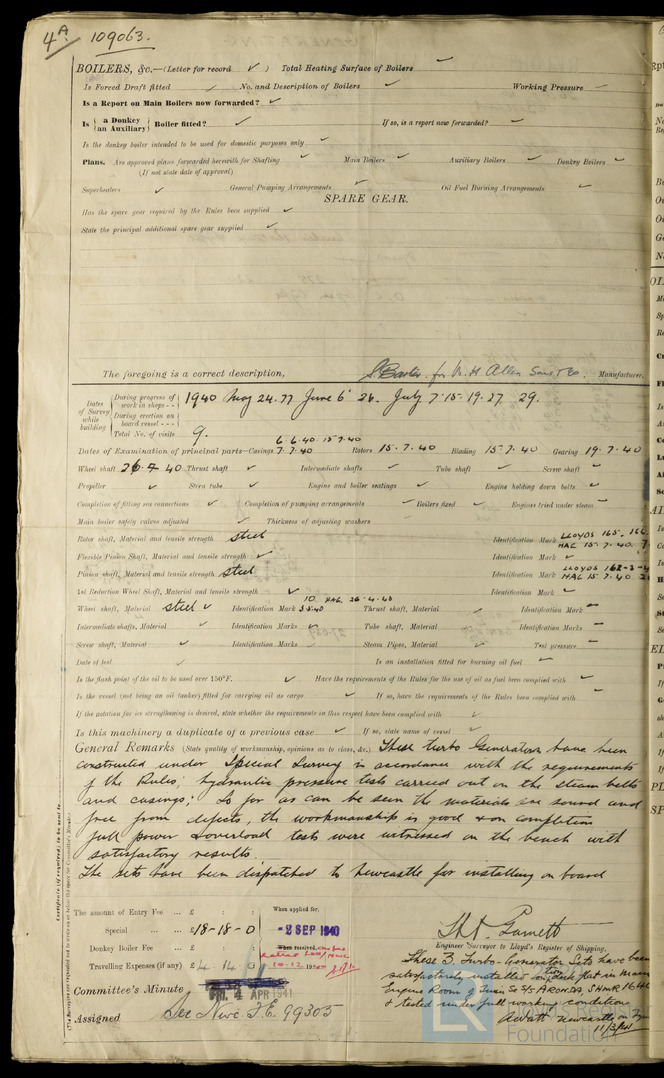 4A 109063.
BOILERS, &c.—(Letter for record ✓ ) Total Heating Surface of Boilers
Is Forced Draft fitted ✓ No. and Description of Boilers ✓ Working Pressure
Is a Report on Main Boilers now forwarded? ✓
Is {a Donkey / an Auxiliary} Boiler fitted? ✓ If so, is a report now forwarded?
Is the donkey boiler intended to be used for domestic purposes only
Plans. Are approved plans forwarded herewith for Shafting ✓ Main Boilers ✓ Auxiliary Boilers ✓ Donkey Boilers
(If not state date of approval)
Superheaters ✓ General Pumping Arrangements ✓ Oil Fuel Burning Arrangements
SPARE GEAR.
Has the spare gear required by the Rules been supplied ✓
State the principal additional spare gear supplied ✓
The foregoing is a correct description, for W. H Allen Sons & Co. Manufacturer.
Dates of Survey while building
During progress of work in shops - - 1940 May 24. 27 June 6 26. July 7.15.19.27 29.
During erection on board vessel - - -
Total No. of visits 9.
6.6.40 15.7.40
Dates of Examination of principal parts—Casings 7.7.40 Rotors 15.7.40 Blading 15.7.40 Gearing 19.7.40
Wheel shaft 26 7 40 Thrust shaft ✓ Intermediate shafts ✓ Tube shaft ✓ Screw shaft
Propeller ✓ Stern tube ✓ Engine and boiler seatings ✓ Engine holding down bolts
Completion of fitting sea connections ✓ Completion of pumping arrangements ✓ Boilers fixed ✓ Engines tried under steam
Main boiler safety valves adjusted ✓ Thickness of adjusting washers
Rotor shaft, Material and tensile strength steel Identification Mark LLOYDS 165. 166
HAG 15.7.40.
Flexible Pinion Shaft, Material and tensile strength ✓ Identification Mark ✓
Pinion shaft, Material and tensile strength steel Identification Mark LLOYDS 162-3-4
HAG 15 7.40
1st Reduction Wheel Shaft, Material and tensile strength ✓ Identification Mark
10 HAG. 26.4.40
Wheel shaft, Material steel ✓ Identification Mark 3.5.40 Thrust shaft, Material ✓ Identification Mark
Intermediate shafts, Material ✓ Identification Marks ✓ Tube shaft, Material ✓ Identification Marks
Screw shaft, Material ✓ Identification Marks ✓ Steam Pipes, Material ✓ Test pressure
Date of test ✓ Is an installation fitted for burning oil fuel
Is the flash point of the oil to be used over 150°F. ✓ Have the requirements of the Rules for the use of oil as fuel been complied with
Is the vessel (not being an oil tanker) fitted for carrying oil as cargo ✓ If so, have the requirements of the Rules been complied with
If the notation for ice strengthening is desired, state whether the requirements in this respect have been complied with ✓
Is this machinery a duplicate of a previous case ✓ If so, state name of vessel ✓
General Remarks (State quality of workmanship, opinions as to class, &c.) These turbo Generators have been
constructed under Special Survey in accordance with the requirements
of the Rules; hydraulic pressure tests carried out on the steam belts
and casings; So far as can be seen the materials are sound and
free from defects, the workmanship is good & on completion
full power & overload tests were witnessed on the bench with
satisfactory results.
The sets have been dispatched to Newcastle for installing on board
The amount of Entry Fee ... £ : :
Special ... £ 18-18-0
Donkey Boiler Fee ... £ : :
Travelling Expenses (if any) £ 4. 14. 0
When applied for,
-2 SEP 1940
When received,
10.12.19
Engineer Surveyor to Lloyd's Register of Shipping,
These 3 Turbo-Generator Sets have been
satisfactorily installed on flat in main
Engine Room of Twin Sc S/S ARONDA,
& tested under full working conditions
Newcastle on Tyne
11/3/41
Committee's Minute FRI. 4 APR 1941
Assigned See Nwc. F.E. 99305
Lloyd's Register
Foundation